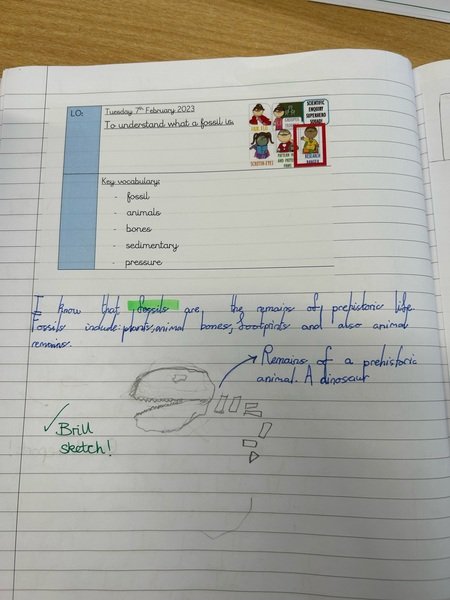 LO:
Tuesday 7th February 2023
To understand what a fossil is.
SCIENTIFIC
ENQUIRY
SUPERHERO
SQUAD
RESEARCH
RANGER
Key vocabulary:
- fossil
- animals
- bones
- sedimentary
- pressure
I know that fossils are the remains of prehistoric life.
Fossils include: plants, animal bones, footprints and also animal
remains.
Remains of a prehistoric
animal. A dinosaur
✓ Brill
sketch!